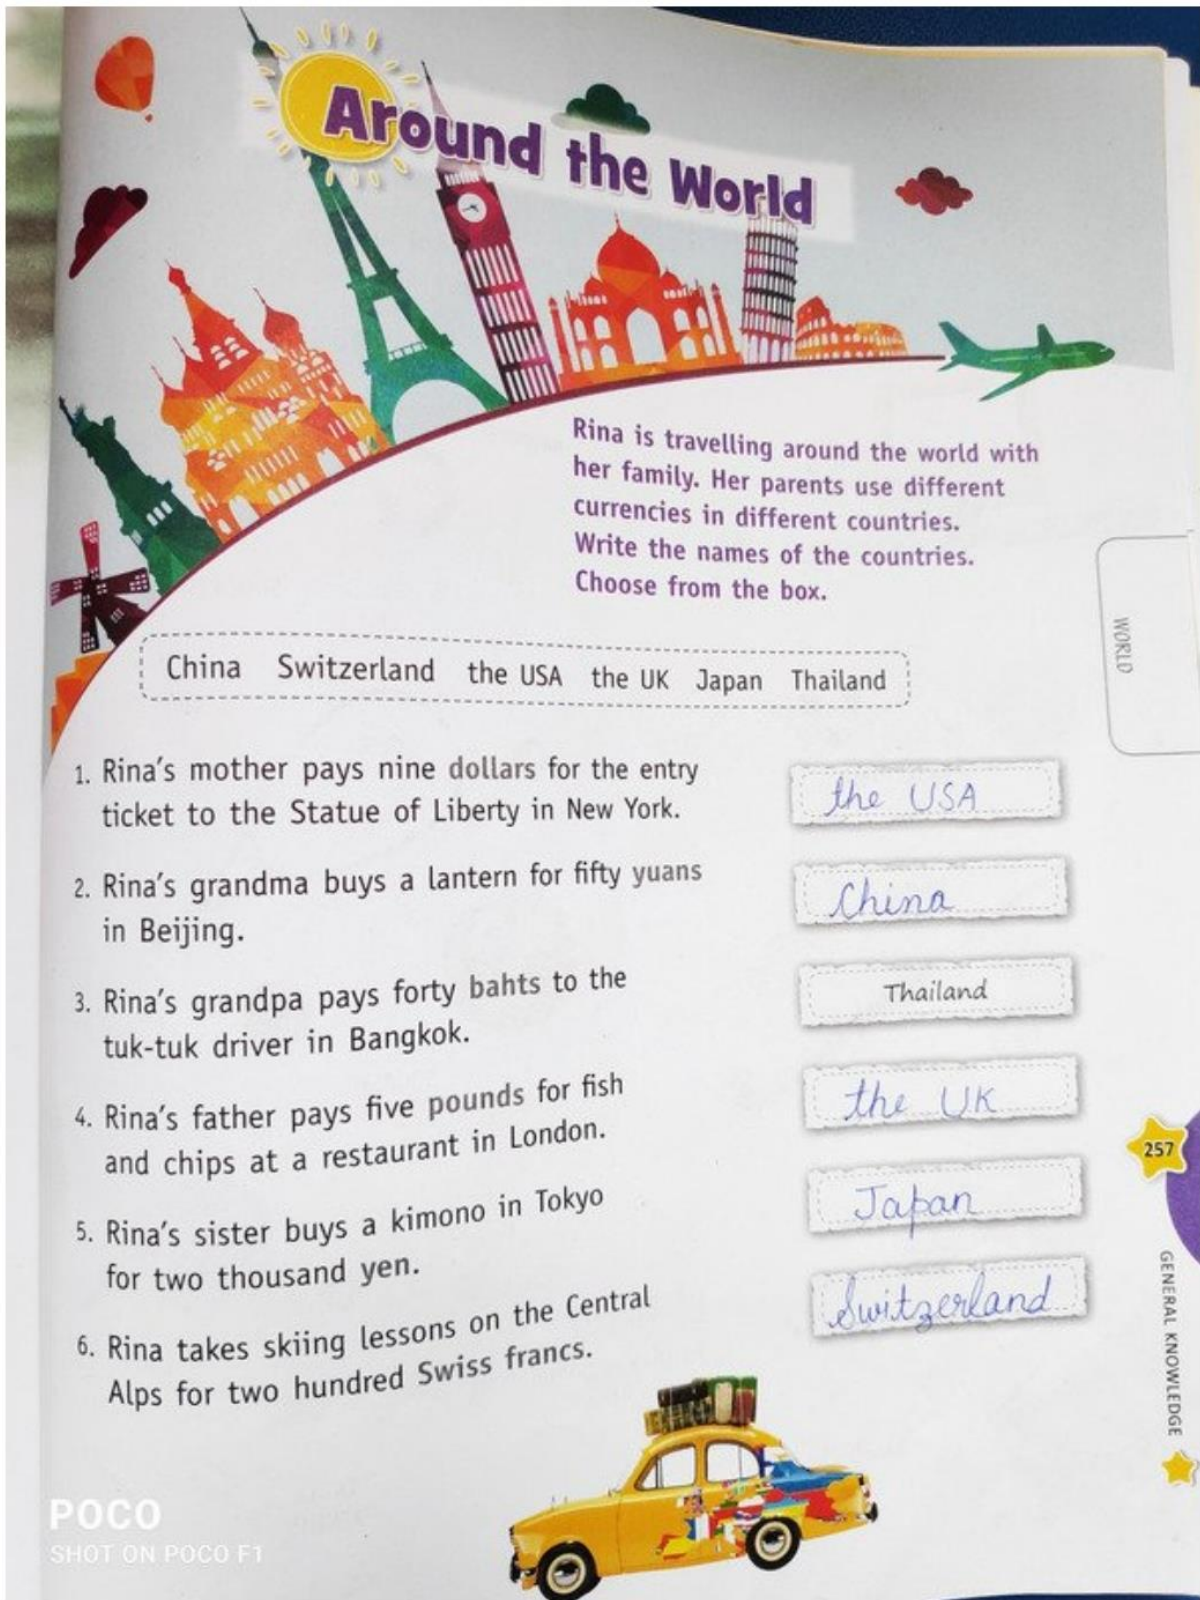 Around the World
Rina is travelling around the world with
her family. Her parents use different
currencies in different countries.
Write the names of the countries.
Choose from the box.
WORLD
China Switzerland the USA the UK Japan Thailand
1. Rina's mother pays nine dollars for the entry
ticket to the Statue of Liberty in New York.
the USA
2. Rina's grandma buys a lantern for fifty yuans
in Beijing.
China
3. Rina's grandpa pays forty bahts to the
tuk-tuk driver in Bangkok.
Thailand
4. Rina's father pays five pounds for fish
and chips at a restaurant in London.
the UK
5. Rina's sister buys a kimono in Tokyo
for two thousand yen.
Japan
6. Rina takes skiing lessons on the Central
Alps for two hundred Swiss francs.
Switzerland
257
GENERAL KNOWLEDGE
POCO
SHOT ON POCO F1